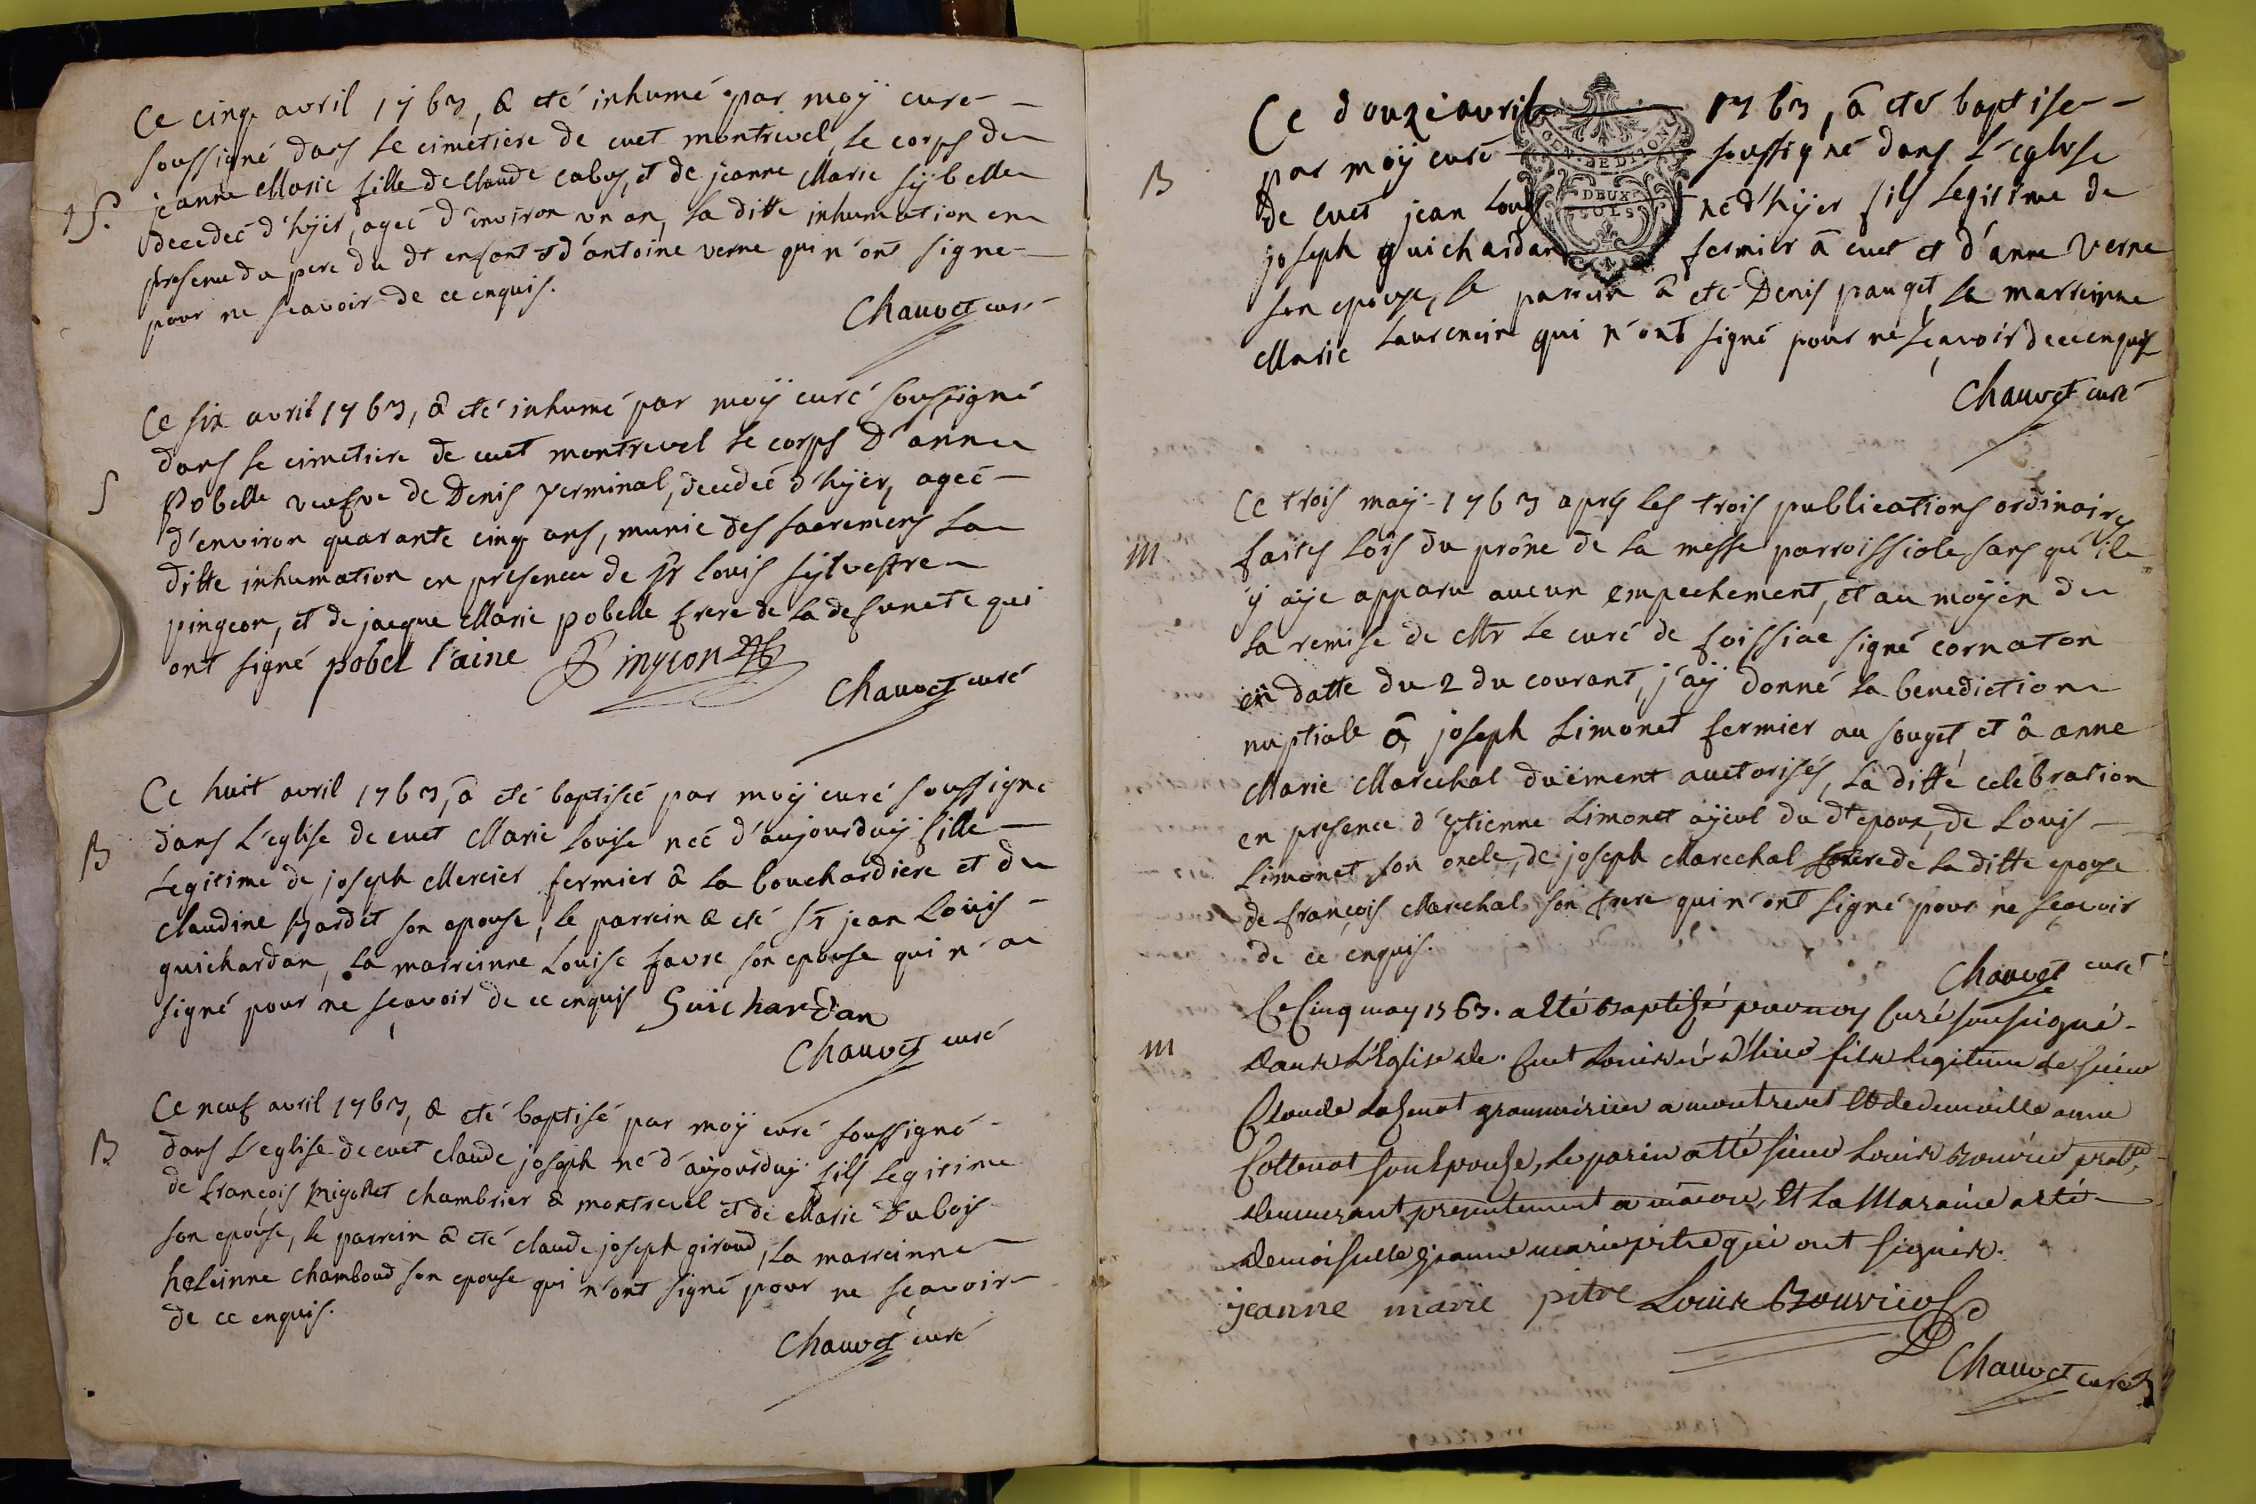 Ce cinq avril 1763, a eté inhumé par moÿ curé
soussigné dans le cimetiere de cuet montrevel, le corps de
jeanne Marie fille de Claude calas, et de jeanne Marie sÿbelle
S.
decedeé d'hÿer, ageé d'environ un an, la ditte inhumation en
presence du pere du dt enfant et d'antoine verne qui n'ont signe
pour ne scavoir de ce enquis.
Chauvet curé
Ce six avril 1763, a eté inhumé par moÿ curé soussigné
dans le cimetiere de cuet montrevel le corps d'anne
S
Pobelle veufve de Denis perminal, decedeé d'hÿer, ageé
d'environ quarante cinq ans, munie des sacremens la
ditte inhumation en presence de Sr louis sÿlvestre
pingeon, et de jacque Marie pobelle frere de la defuncte qui
ont signé pobel l'aine Pingeon
Chauvet curé
Ce huit avril 1763, a eté baptiseé par moÿ curé soussigné
B
dans l'eglise de cuet Marie louise neé d'aujourduÿ fille
legitime de joseph Mercier fermier â la bouchardiere et de
claudine bardet son epouse, le parrein a eté Sr jean Louis
guichardan, la marreinne Louise favre son epouse qui n'a
signé pour ne sçavoir de ce enquis Guichardan
Chauvet curé
Ce neuf avril 1763, a eté baptisé par moÿ curé soussigné
B
dans l'eglise de cuet claude joseph né d'aujourduÿ fils legitime
de françois Migollet chambrier a montrevel et de Marie Dubois
son epouse, le parrein a eté claude joseph giroud, la marreinne
heleinne chamboud son epouse qui n'ont signé pour ne sçavoir
de ce enquis.
Chauvet curé
Ce douze avril 1763, â eté baptise
par moÿ curé soussigné dans l'eglise
GEN. DE DIJON
DEUX SOLS
B
de cuet jean louis né d'hÿer fils legitime de
joseph guichardan fermier â cuet et d'anne verne
son epouse, le parrein â eté Denis pauget, la marreinne
Marie Laurencin qui n'ont signé pour ne sçavoir de ce enquis
Chauvet curé
Ce trois maÿ 1763 aprés les trois publications ordinaires
m
faites lors du prône de la messe parroissiale sans qu'il
ÿ aÿe apparu aucun empechement, et au moÿen de
la remise de Mr le curé de foissiae signé cornaton
en datte du 2 du courant, j'aÿ donné la benediction
nuptiale â joseph Limonet fermier au souget, et â anne
Marie Marechal düement auctorisés, la ditte celebration
en presence d'Etienne Limonet aÿeul du dt epoux, de Louis
Limonet son oncle, de joseph Marechal frere de la ditte epouse
de françois Marechal son frere qui n'ont signé pour ne sçavoir
de ce enquis.
Chauvet curé
Ce Cinq may 1763. a Eté Baptisé par moy Curé soussigné
m
dans L'Eglise de Cuet Louis né d'hier fils legitime de sieur
Claude grammérien a montrevel Et de demoiselle anne
Cottenot son Epouse, Le parein a Eté sieur Louis Bouvier
demeurant presentement a mâcon, Et La Maraine a Eté
demoiselle jeanne marie pitre qui ont signés.
jeanne marie pitre Louis Bouvier
Chauvet curé